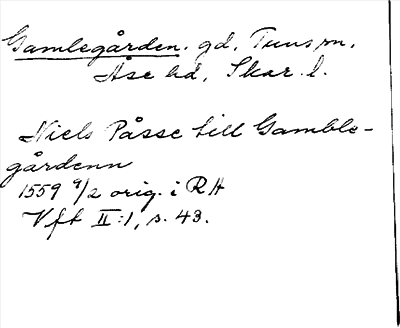 Gamlegården. gd. Tuns sn.
Åse hd, Skar. l.
Niels Påsse till Gamble-
gårdenn
1559 9/2 orig. i RA
Vft II:1, s. 43.